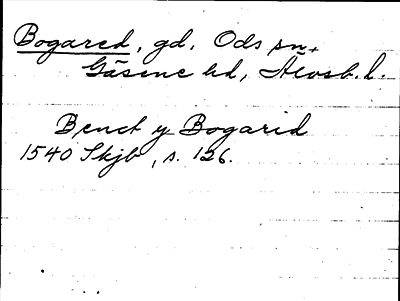 Bogared, gd. Ods sn,
Gäsene hd, Älvsb. l.
Benct y Bogarid
1540 Skjb, s. 126.